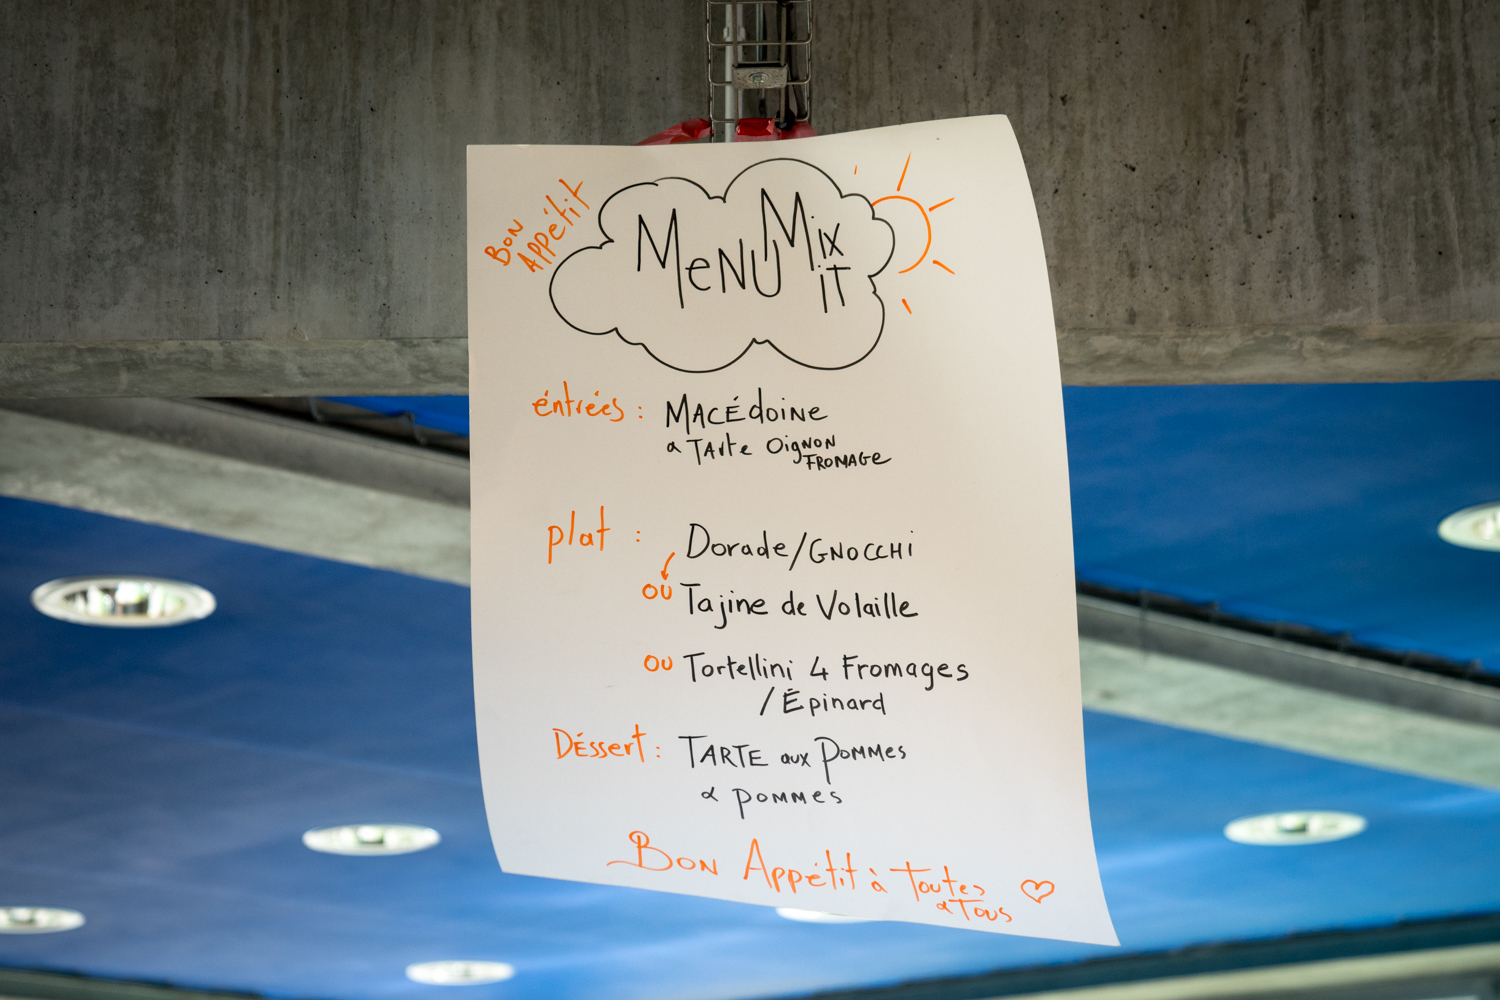 Bon
Appétit
Menu Mix
it
éntrées : Macédoine
& Tarte Oignon
Fromage
plat : Dorade/Gnocchi
ou Tajine de Volaille
ou Tortellini 4 Fromages
/Épinard
Déssert : Tarte aux Pommes
& pommes
Bon Appétit à Toutes
& Tous